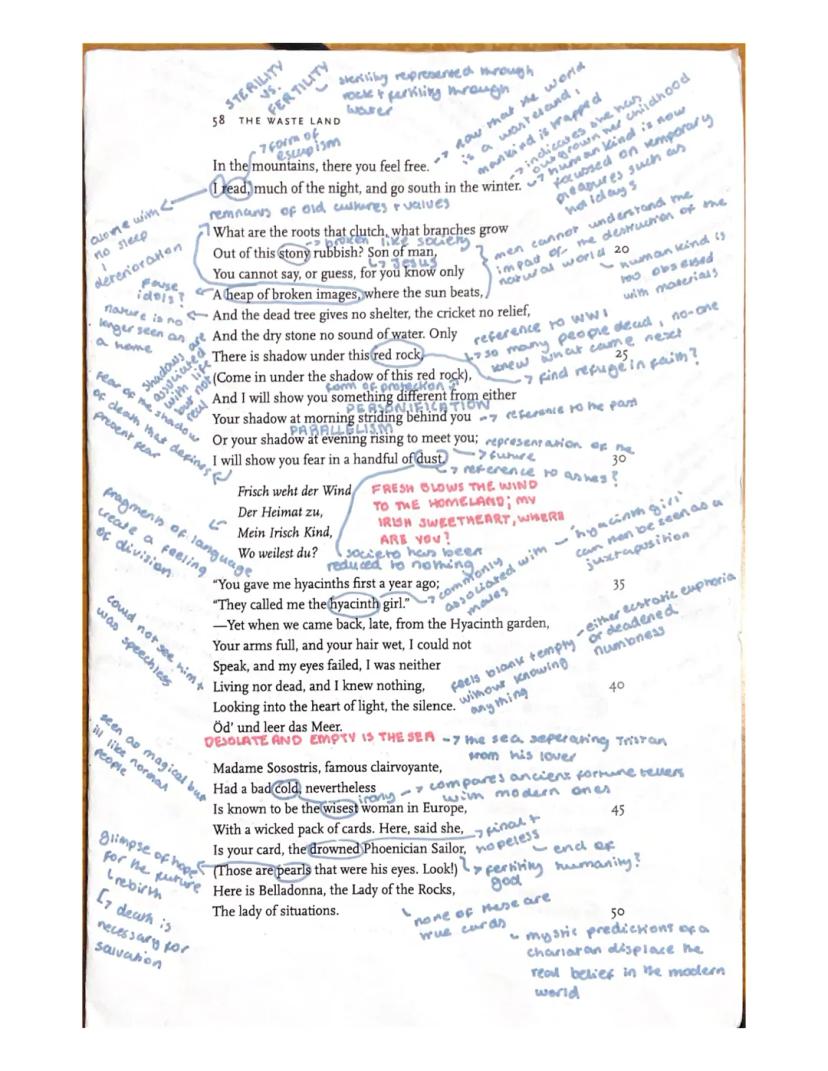 STERILITY
VS.
FERTILITY
sterility represented through
rock & fertility through
water
58 THE WASTE LAND
form of
escapism
now that the world
is a wasteland,
mankind is trapped
indicates she has
outgrown her childhood
humankind is now
focussed on temporary
pleasures such as
holidays
In the mountains, there you feel free.
I read, much of the night, and go south in the winter.
alone with
no sleep
deterioration
remnants of old cultures & values
What are the roots that clutch, what branches grow
broken like society
Out of this stony rubbish? Son of man, 20
Jesus
You cannot say, or guess, for you know only
men cannot understand the
impact of the destruction of the
natural world
humankind is
too obsessed
with materials
false
idols?
A heap of broken images, where the sun beats,
nature is no
longer seen as
a home
And the dead tree gives no shelter, the cricket no relief,
And the dry stone no sound of water. Only
reference to WWI
so many people dead, no-one
knew what came next
There is shadow under this red rock, 25
shadows are
associated
with life
but not
real
(Come in under the shadow of this red rock),
find refuge in faith?
form of protection?
And I will show you something different from either
PERSONIFICATION
Your shadow at morning striding behind you
reference to the past
PARALLELISM
Or your shadow at evening rising to meet you;
representation of the
future
fear of the shadow
of death that defines
present fear
I will show you fear in a handful of dust. 30
reference to ashes?
Frisch weht der Wind
Der Heimat zu,
Mein Irisch Kind,
Wo weilest du?
FRESH BLOWS THE WIND
TO THE HOMELAND; MY
IRISH SWEETHEART, WHERE
ARE YOU?
fragments of language
create a feeling
of division
society has been
reduced to nothing
commonly
associated with
males
'hyacinth girl'
can then be seen as a
juxtaposition
"You gave me hyacinths first a year ago; 35
"They called me the hyacinth girl."
—Yet when we came back, late, from the Hyacinth garden,
Your arms full, and your hair wet, I could not
Speak, and my eyes failed, I was neither
Living nor dead, and I knew nothing, 40
Looking into the heart of light, the silence.
Öd' und leer das Meer.
could not see him &
was speechless
feels blank & empty
without knowing
anything
either ecstatic euphoria
or deadened
numbness
DESOLATE AND EMPTY IS THE SEA
the sea seperating Tristan
from his lover
seen as magical but
ill like normal
people
Madame Sosostris, famous clairvoyante,
Had a bad cold, nevertheless
irony
compares ancient fortune tellers
with modern ones
Is known to be the wisest woman in Europe, 45
With a wicked pack of cards. Here, said she,
final &
hopeless
Is your card, the drowned Phoenician Sailor,
end of
humanity?
glimpse of hope
for the future
rebirth
death is
necessary for
salvation
(Those are pearls that were his eyes. Look!)
fertility
god
Here is Belladonna, the Lady of the Rocks,
The lady of situations. 50
none of these are
true cards
mystic predictions of a
charlatan displace the
real belief in the modern
world